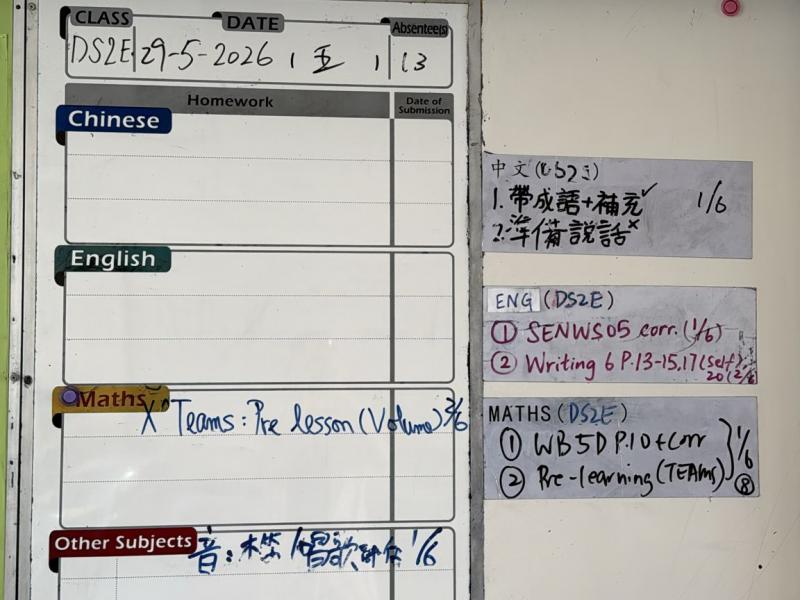 CLASS DATE Absentee(s)
DS2E 29-5-2026 , 五 , 13
Homework Date of Submission
Chinese
English
Maths
X Teams: Pre lesson (Volume) 2/6
Other Subjects
音: 唱歌 1/6
中文
1. 帶成語+補充✓ 1/6
2. 準備説話×
ENG (DS2E)
① SENWS05 corr. (1/6)
② Writing 6 P.13-15,17 (Self)
20 (2/6)
MATHS (DS2E)
① WB 5D P.10 + Corr
② Pre-learning (TEAMS) 1/6
⑧